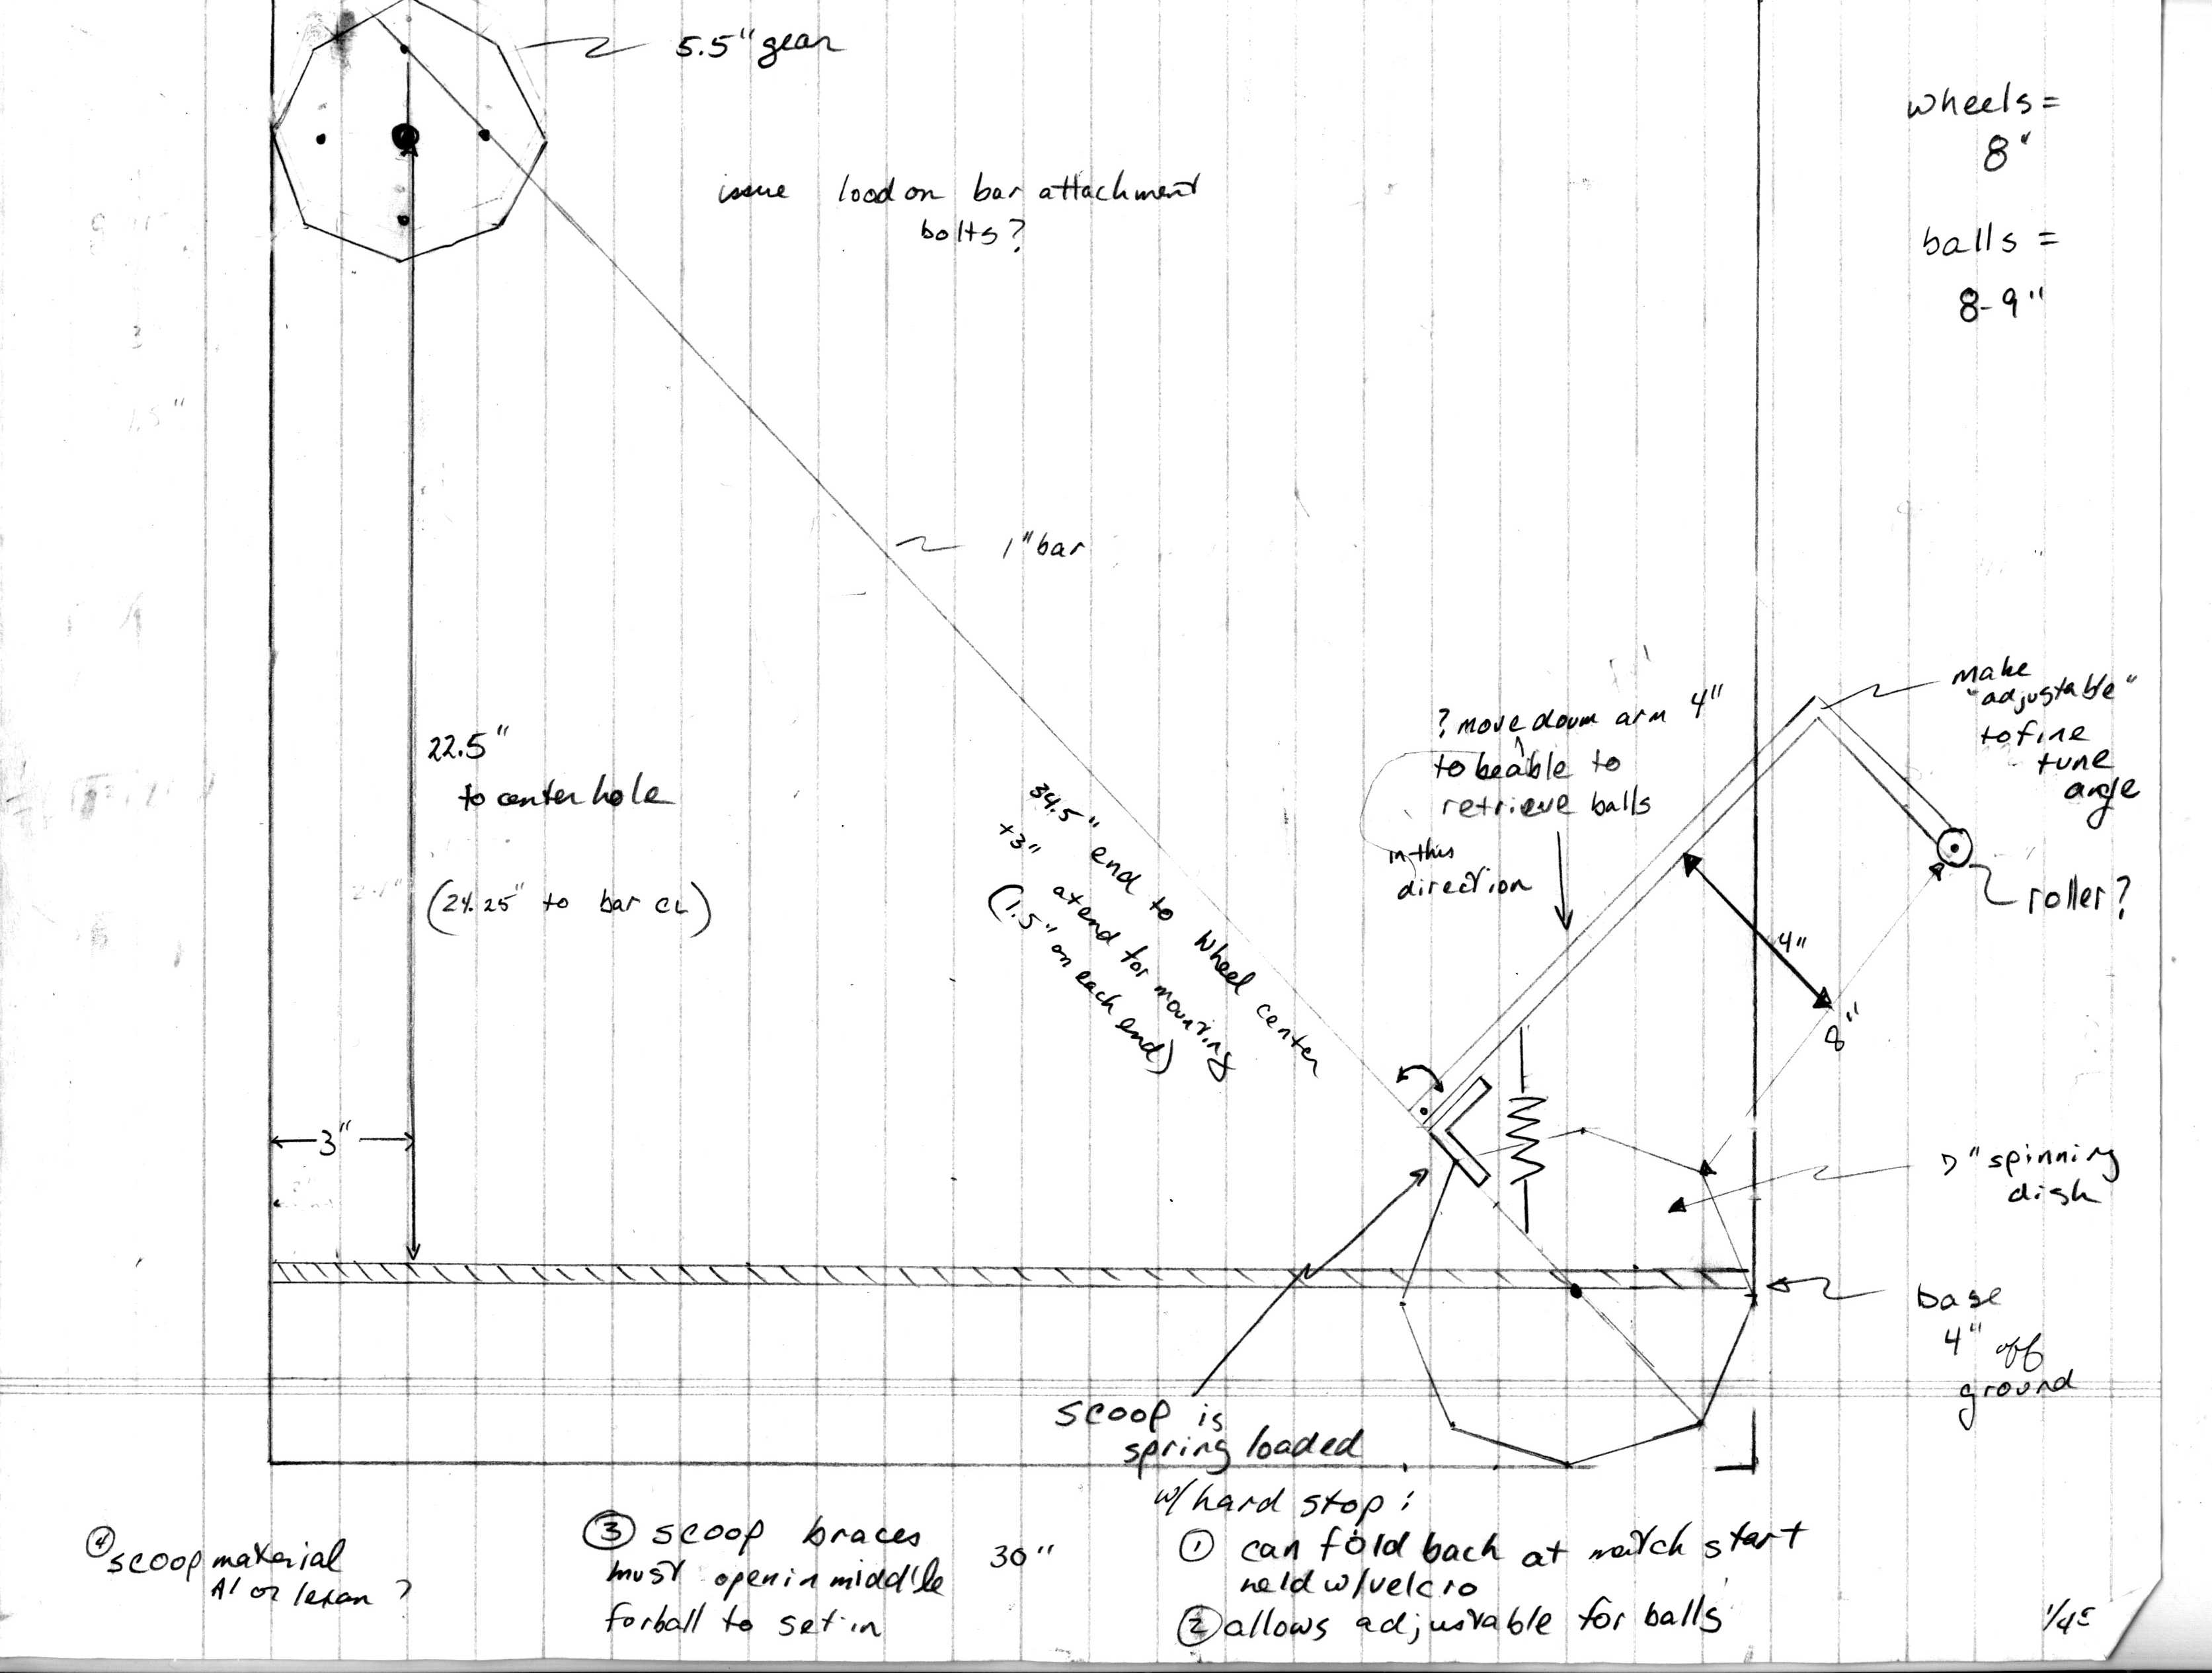 5.5" gear
wheels =
8"
balls =
8-9"
issue load on bar attachment
bolts?
1" bar
make
"adjustable"
to fine
tune
ange
? move down arm 4"
to be able to
retrieve balls
in this
direction
22.5"
to center hole
(24.25" to bar CL)
34.5" end to wheel center
+3" at end for mounting
(1.5" on each end)
roller?
4"
8"
3"
7" spinning
dish
base
4" off
ground
scoop is
spring loaded
w/ hard stop:
① can fold back at match start
held w/velcro
② allows adjustable for balls
③ scoop braces
must open in middle
for ball to set in
30"
④ scoop material
Al or lexan ?